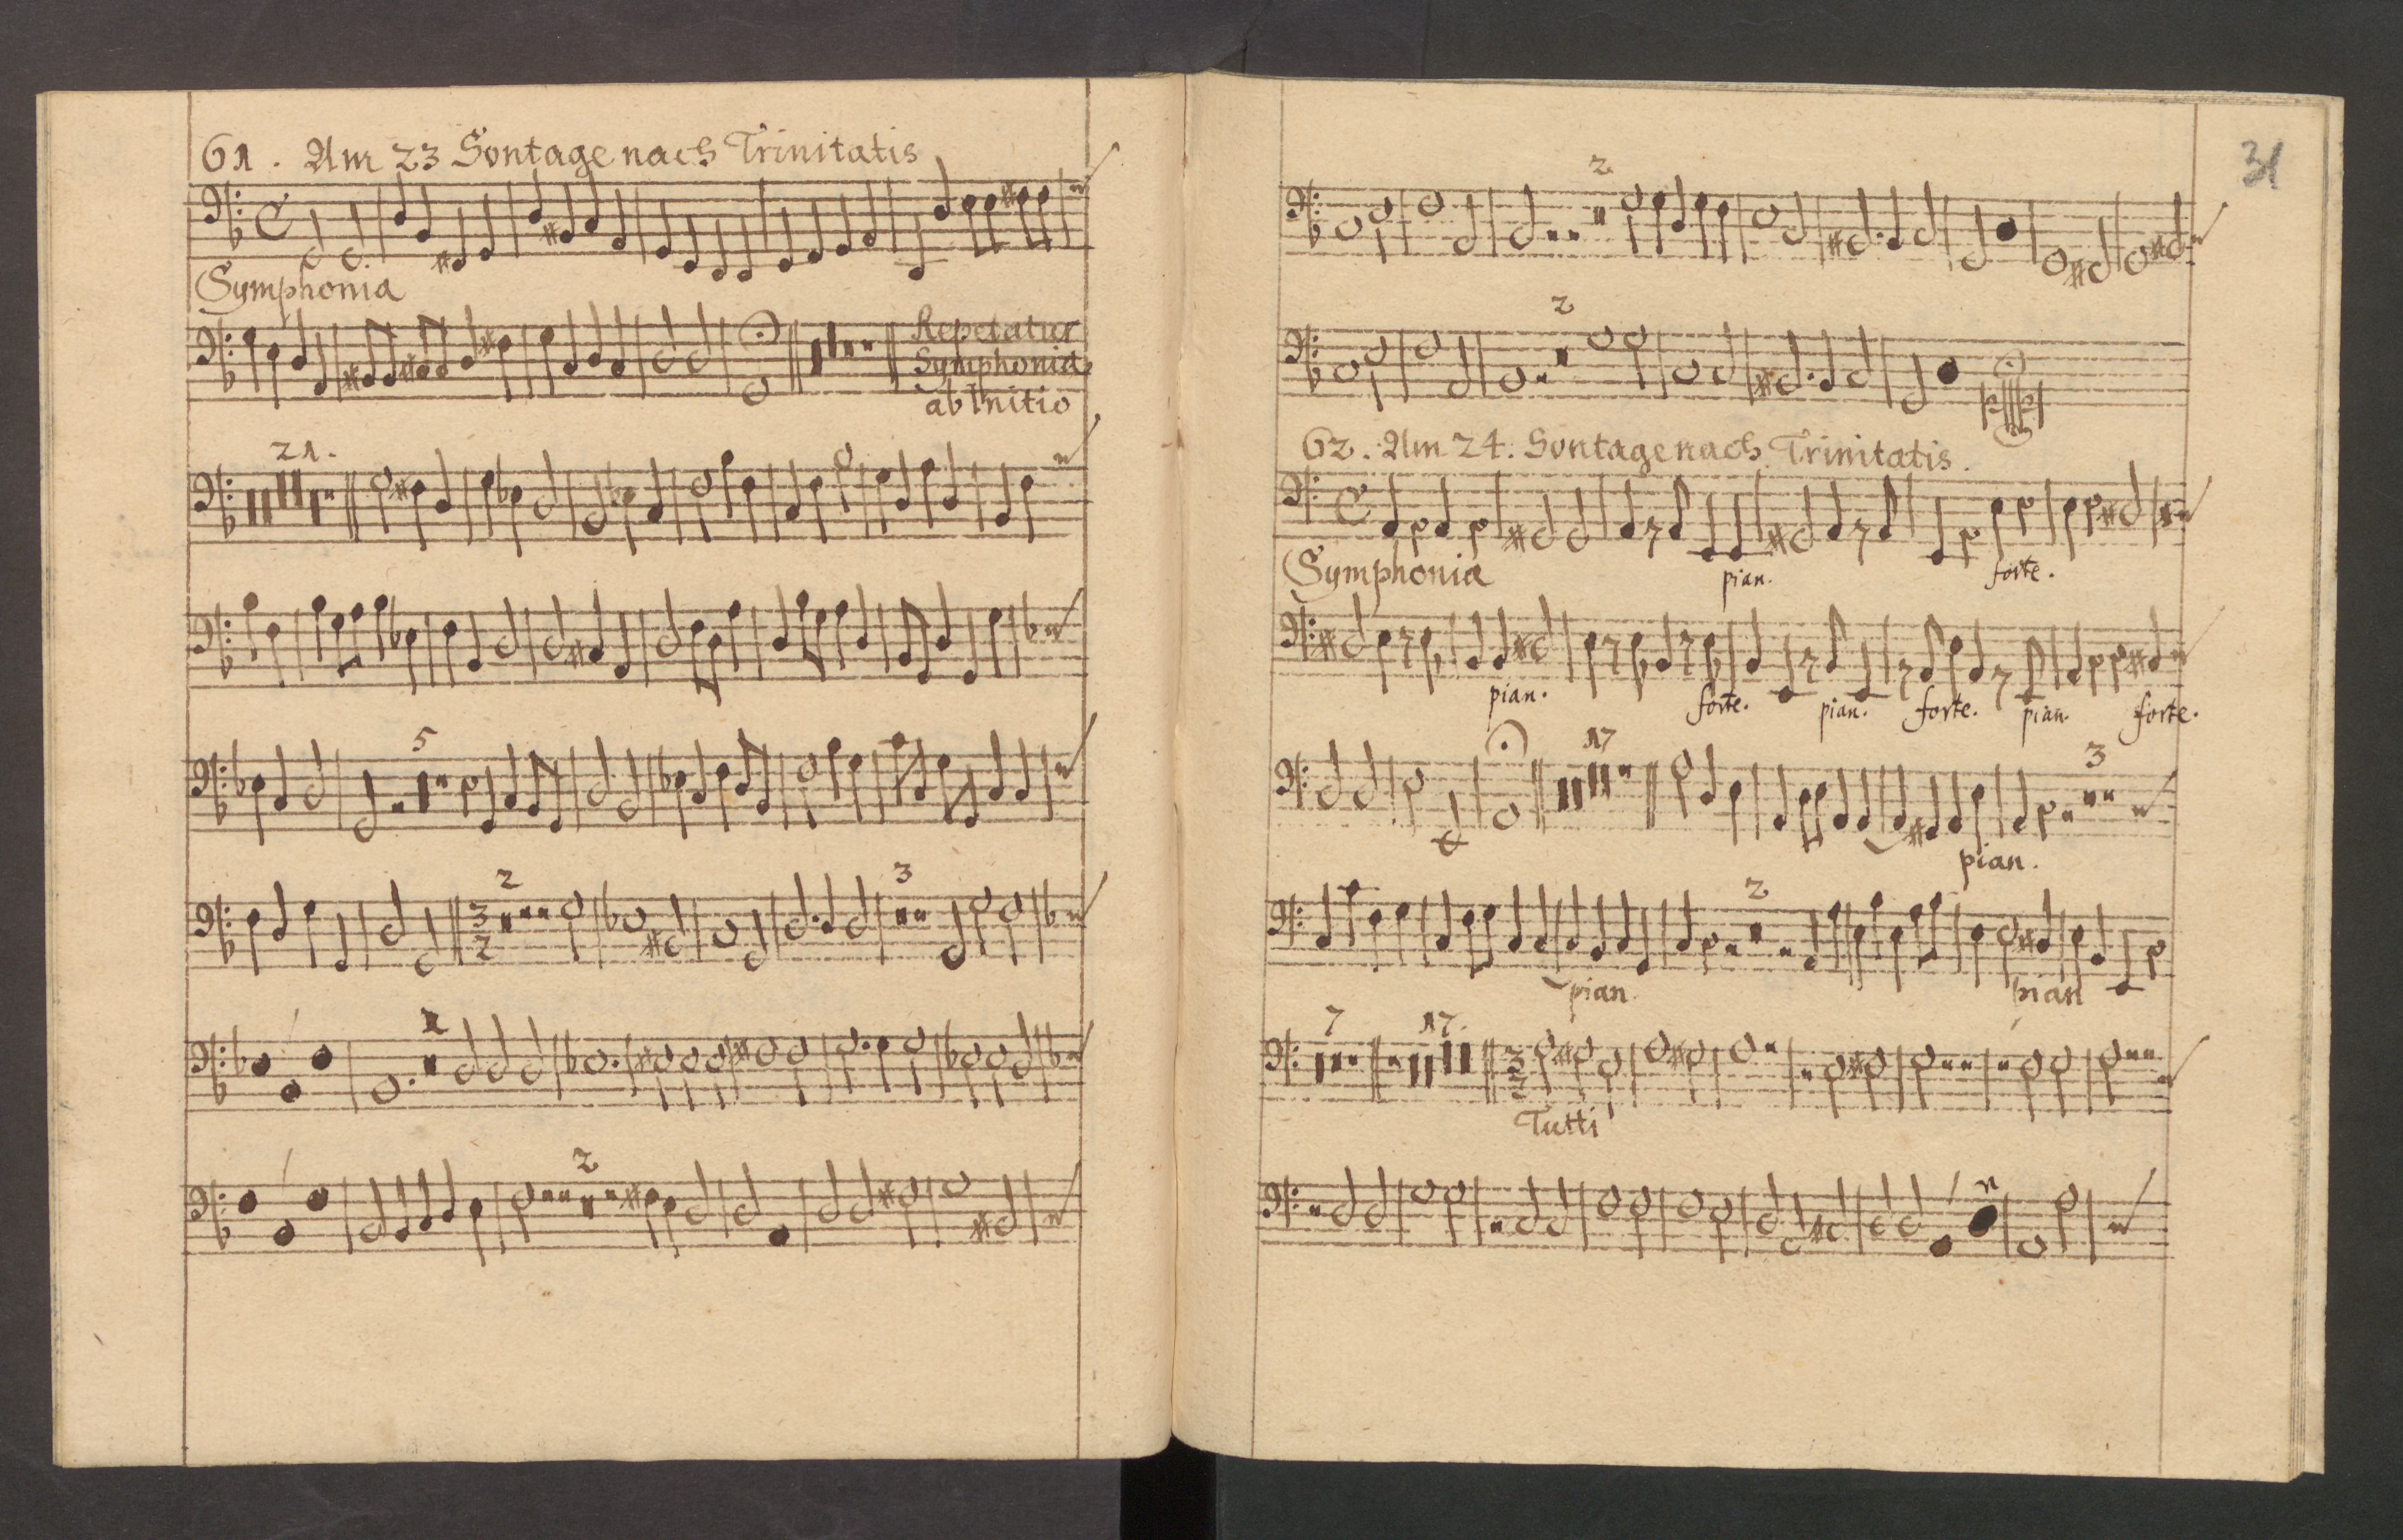 61. Am 23 Sontage nach Trinitatis
Symphonia
Repetatur
Symphonia
ab Initio
21.
5
3
2
2
3
1
2
31
2
2
62. Am 24. Sontage nach Trinitatis.
Symphonia
pian.
forte.
pian.
forte.
pian.
forte.
pian.
forte.
17
3
pian.
2
pian.
pian
7
17.
3
2
Tutti